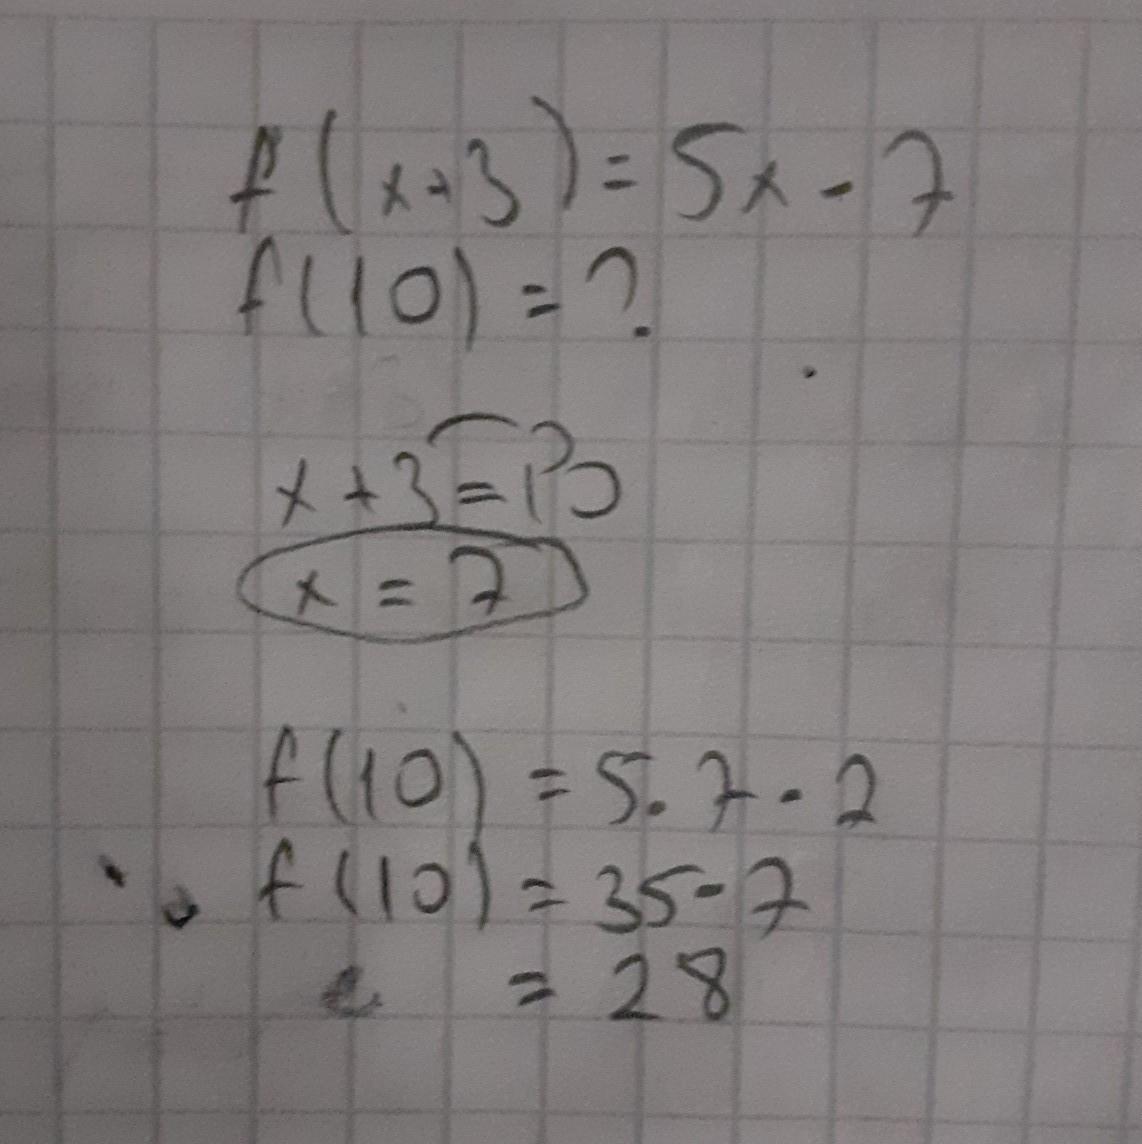 f(x+3)=5x-7
f(10)=?
x+3=10
x=7
f(10)=5.7-2
f(10)=35-7
=28